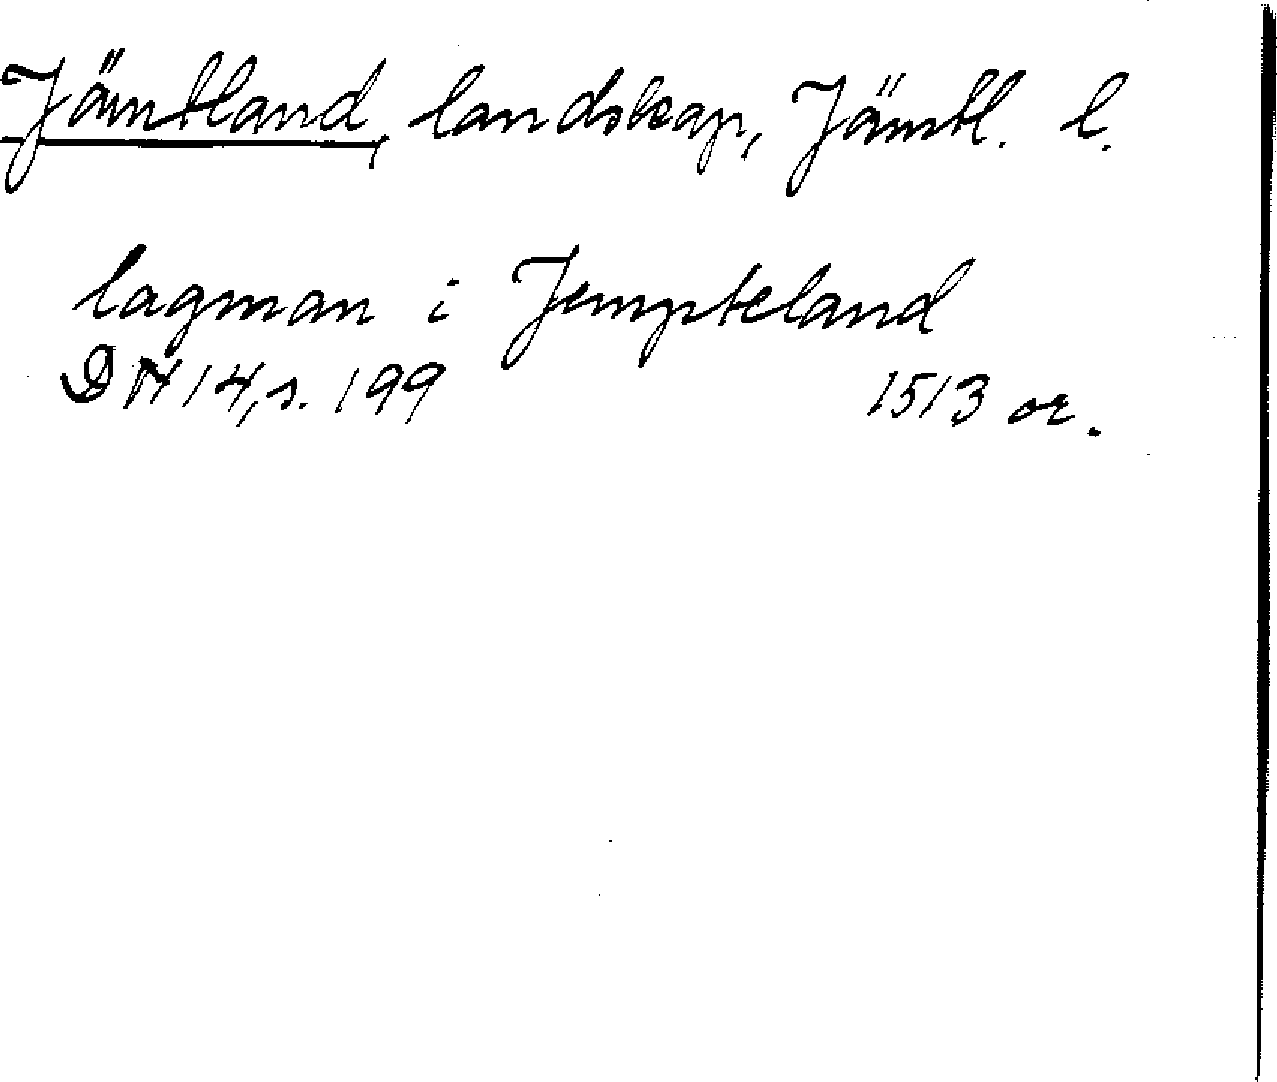 Jämtland, landskap, Jämtl. l.
lagman i Jempteland
DN 14, s. 199 1513 or.